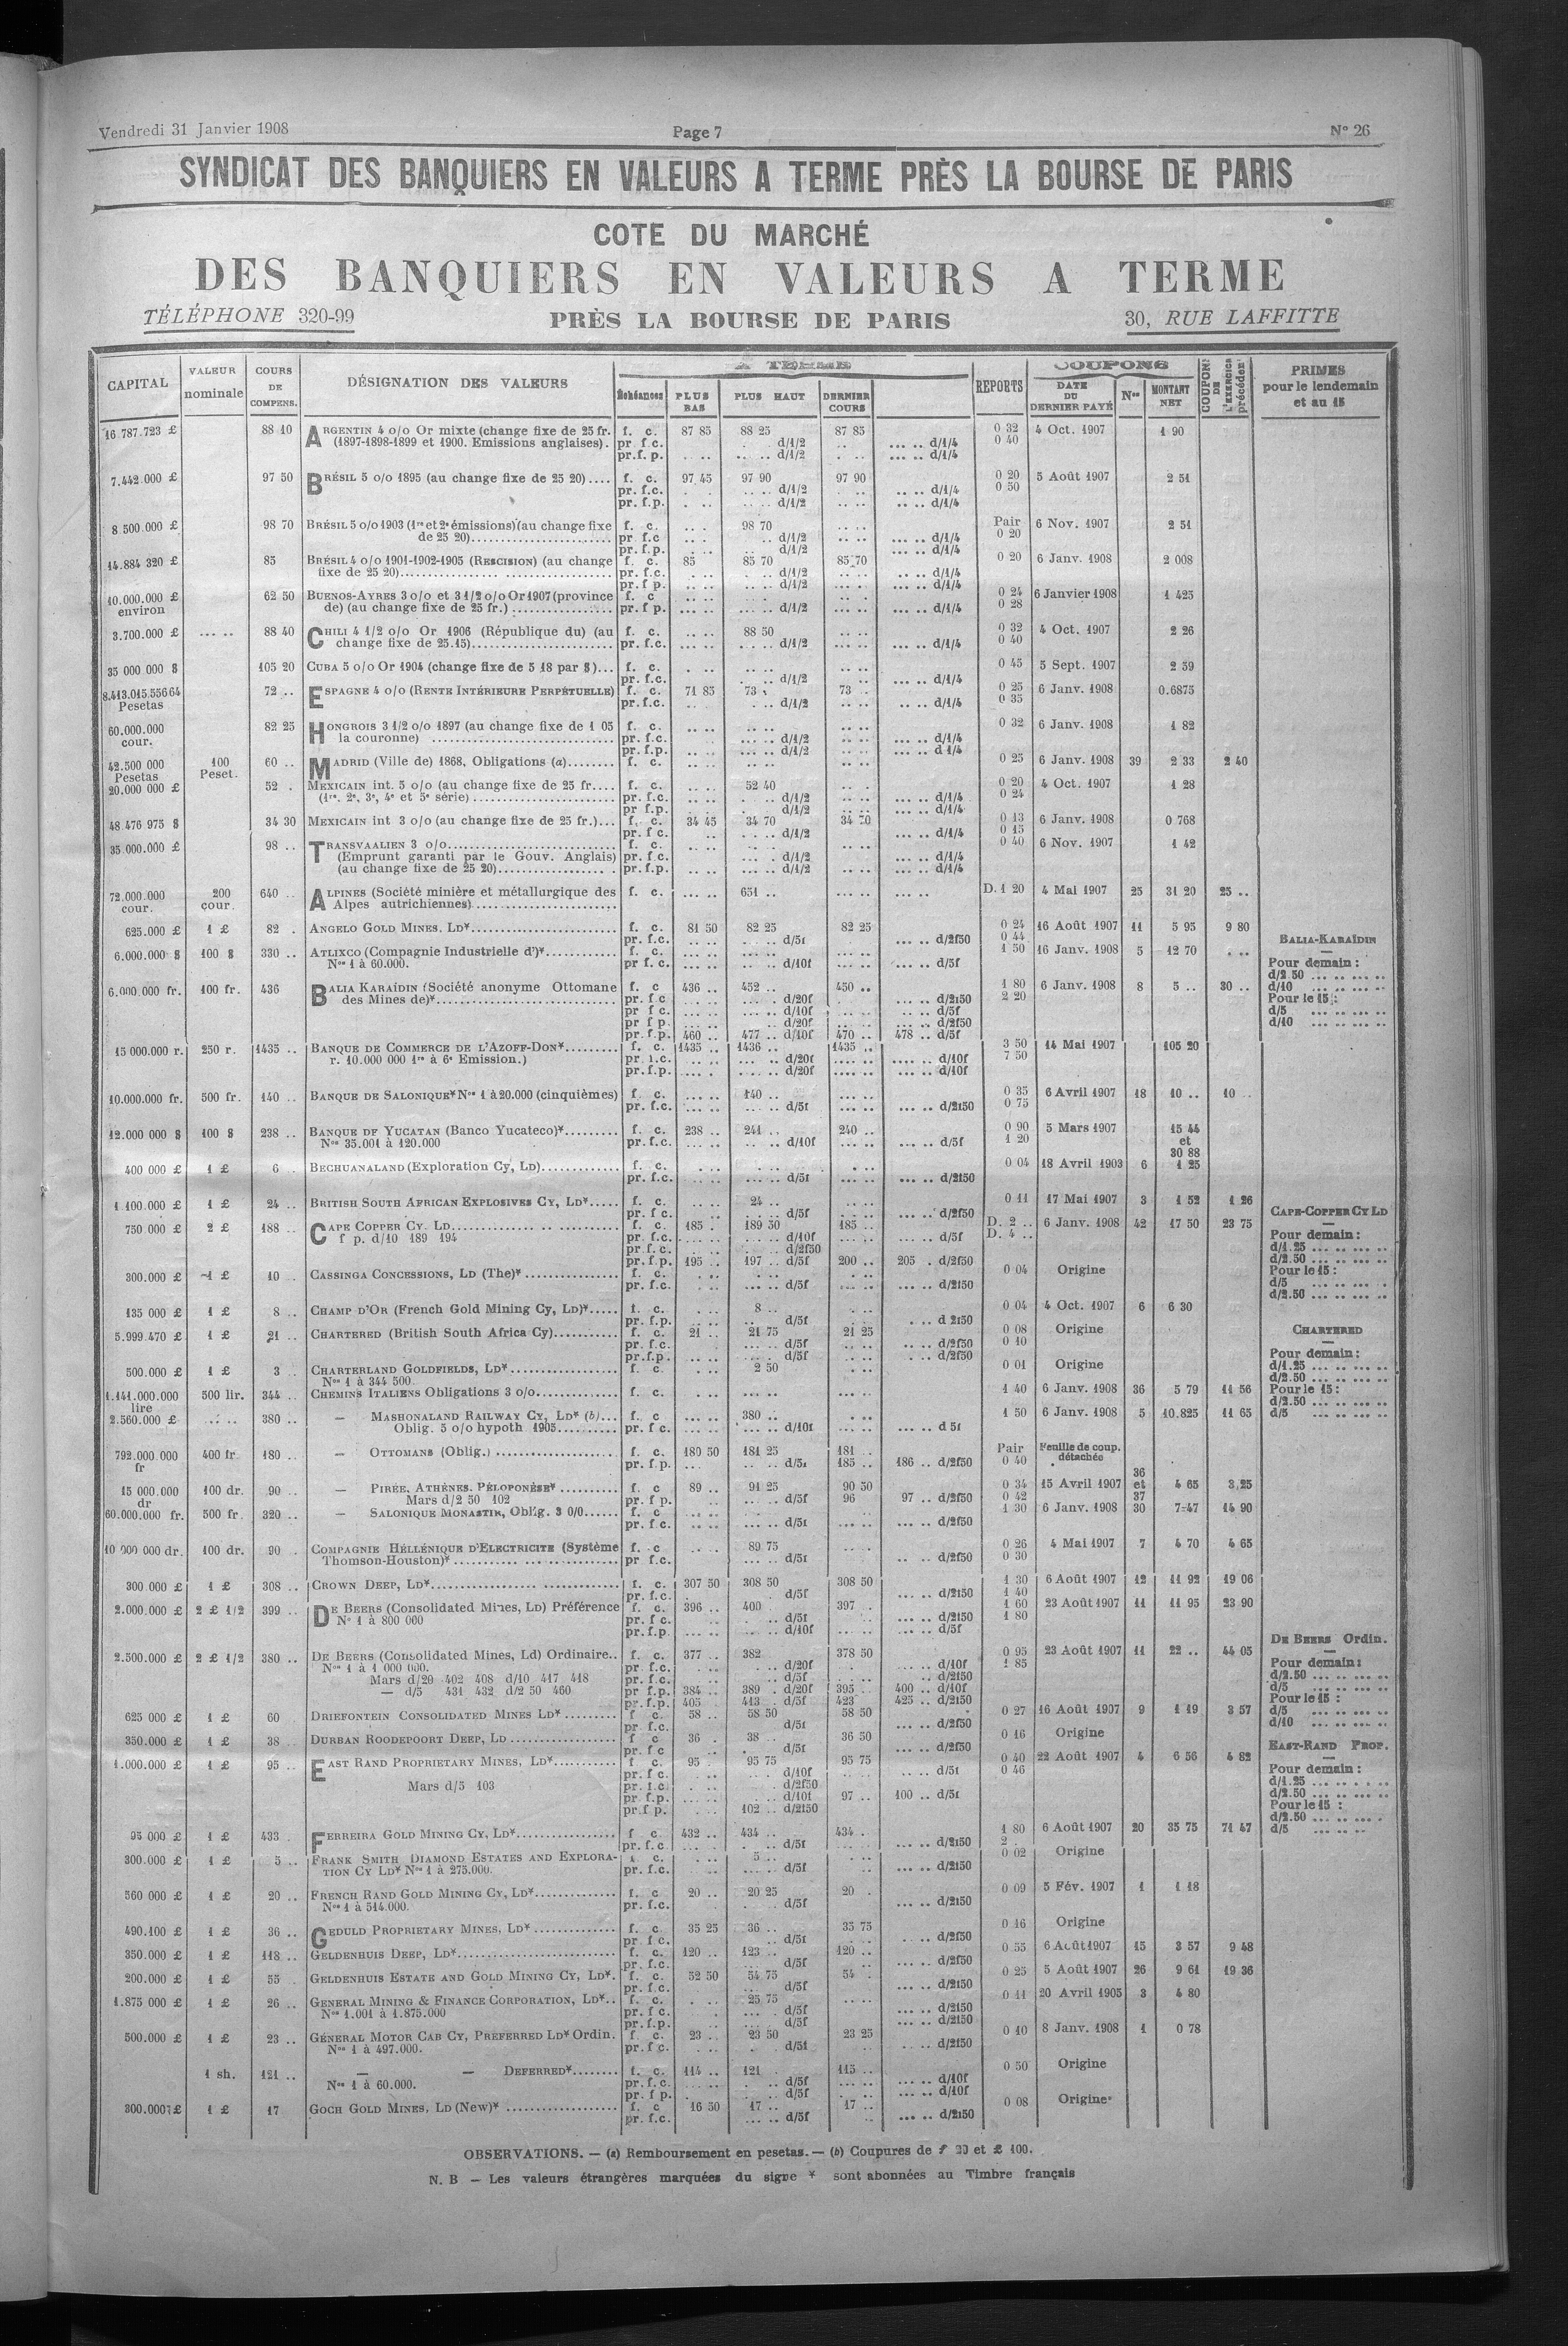 Vendredi 31 Janvier 1908 Page 7 N° 26
SYNDICAT DES BANQUIERS EN VALEURS A TERME PRÈS LA BOURSE DE PARIS
COTE DU MARCHÉ
DES BANQUIERS EN VALEURS A TERME
TÉLÉPHONE 320-99 PRÈS LA BOURSE DE PARIS 30, RUE LAFFITTE
CAPITAL VALEUR nominale COURS DE COMPENS. DÉSIGNATION DES VALEURS Échéances PLUS BAS PLUS HAUT DERNIER COURS REPORTS COUPONS DATE DU DERNIER PAYÉ Nos MONTANT NET COUPONS DE L'EXERCICE précédent PRIMES pour le lendemain et au 15
16.787.723 £ 88 10 ARGENTIN 4 o/o Or mixte (change fixe de 25 fr. f. c. 87 85 88 25 87 85 0 32 4 Oct. 1907 1 90
(1897-1898-1899 et 1900. Emissions anglaises). pr f.c. d/1/2 d/1/4 0 40
pr.f. p. d/1/2 d/1/4
7.442.000 £ 97 50 BRÉSIL 5 o/o 1895 (au change fixe de 25 20).... f. c. 97 45 97 90 97 90 0 20 5 Août 1907 2 51
pr. f.c. d/1/2 d/1/4 0 50
pr. f.p. d/1/2 d/1/4
8 500.000 £ 98 70 BRÉSIL 5 o/o 1903 (1re et 2e émissions) (au change fixe f. c. 98 70 Pair 6 Nov. 1907 2 51
de 25 20) pr f.c d/1/2 d/1/4 0 20
pr. f.p. d/1/2 d/1/4
14.884 320 £ 85 BRÉSIL 4 o/o 1901-1902-1905 (RESCISION) (au change f. c. 85 85 70 85 70 0 20 6 Janv. 1908 2 008
fixe de 25 20) pr. f.c. d/1/2 d/1/4
pr. f p. d/1/2 d/1/4
10.000.000 £ environ 62 50 BUENOS-AYRES 3 o/o et 3 1/2 o/o Or 1907 (province f. c 0 24 6 Janvier 1908 1 425
de) (au change fixe de 25 fr.) pr. f p. d/1/2 d/1/4 0 28
3.700.000 £ 88 40 CHILI 4 1/2 o/o Or 1906 (République du) (au f. c. 88 50 0 32 4 Oct. 1907 2 26
change fixe de 25.15) pr. f.c. d/1/2 d/1/4 0 40
35 000 000 $ 105 20 CUBA 5 o/o Or 1904 (change fixe de 5 18 par $)... f. c. 0 45 5 Sept. 1907 2 59
pr. f.c. d/1/2 d/1/4
8.413.015.556 64 Pesetas 72 .. ESPAGNE 4 o/o (RENTE INTÉRIEURE PERPÉTUELLE) f. c. 71 85 73 73 0 25 6 Janv. 1908 0.6875
pr. f.c. d/1/2 d/1/4 0 35
60.000.000 cour. 82 25 HONGROIS 3 1/2 o/o 1897 (au change fixe de 1 05 f. c. 0 32 6 Janv. 1908 1 82
la couronne) pr. f.c. d/1/2 d/1/4
pr. f.p. d/1/2 d 1/4
42.500 000 Pesetas 100 Peset. 60 .. MADRID (Ville de) 1868, Obligations (a) f. c. 0 25 6 Janv. 1908 39 2 33 2 40
20.000 000 £ 52 MEXICAIN int. 5 o/o (au change fixe de 25 fr.... f. c. 52 40 0 20 4 Oct. 1907 1 28
(1re, 2e, 3e, 4e et 5e série) pr. f.c. d/1/2 d/1/4 0 24
pr f.p. d/1/2 d/1/4
48 476 975 $ 34 30 MEXICAIN int 3 o/o (au change fixe de 25 fr.)... f. c. 34 45 34 70 34 70 0 13 6 Janv. 1908 0 768
pr. f c. d/1/2 d/1/4 0 15
35.000.000 £ 98 .. TRANSVAALIEN 3 o/o f. c. 0 40 6 Nov. 1907 1 42
(Emprunt garanti par le Gouv. Anglais) pr. f.c. d/1/2 d/1/4
(au change fixe de 25 20) pr. f.p. d/1/2 d/1/4
72.000.000 cour. 200 cour. 640 .. ALPINES (Société minière et métallurgique des f. c. 651 .. D. 1 20 4 Mai 1907 25 31 20 25 ..
Alpes autrichiennes)
625.000 £ 1 £ 82 ANGELO GOLD MINES, LD* f. c. 81 50 82 25 82 25 0 24 16 Août 1907 11 5 95 9 80
pr. f.c. d/5f d/2f50 0 44
6.000.000 $ 100 $ 330 .. ATLIXCO (Compagnie Industrielle d')* f. c. 1 50 16 Janv. 1908 5 12 70
Nos 1 à 60.000. pr f. c. d/10f d/5f
6.000.000 fr. 100 fr. 436 BALIA KARAÏDIN (Société anonyme Ottomane f. c 436 .. 452 .. 450 .. 1 80 6 Janv. 1908 8 5 .. 30 ..
des Mines de)* pr. f c d/20f d/2f50 2 20
pr f c. d/10f d/5f
pr f p. d/20f d/2f50
pr. f.p. 460 477 .. d/10f 470 .. 478 .. d/5f
BALIA-KARAÏDIN
Pour demain :
d/2 50
d/10
Pour le 15 :
d/5
d/10
15 000.000 r. 250 r. 1435 .. BANQUE DE COMMERCE DE L'AZOFF-DON* f. c. 1435 .. 1436 .. 1435 .. 3 50 14 Mai 1907 105 20
r. 10.000 000 1re à 6e Emission.) pr. f.c. d/20f d/10f 7 50
pr. f.p. d/20f d/10f
10.000.000 fr. 500 fr. 140 .. BANQUE DE SALONIQUE* Nos 1 à 20.000 (cinquièmes) f. c. 140 .. 0 35 6 Avril 1907 18 10 .. 10 ..
pr. f.c. d/5f d/2f50 0 75
12.000 000 $ 100 $ 238 .. BANQUE DE YUCATAN (Banco Yucateco)* f. c. 238 .. 241 .. 240 .. 0 90 5 Mars 1907 15 44
Nos 35.001 à 120.000 pr. f.c. d/10f d/5f 1 20 et 30 88
400 000 £ 1 £ 6 .. BECHUANALAND (Exploration Cy, LD) f. c. 0 04 18 Avril 1903 6 1 25
pr. f.c. d/5f d/2f50
1 100.000 £ 1 £ 24 .. BRITISH SOUTH AFRICAN EXPLOSIVES CY, LD* f. c. 24 .. 0 11 17 Mai 1907 3 1 52 1 26
pr. f c. d/5f d/2f50
750 000 £ 2 £ 188 .. CAPE COPPER CY. LD f. c. 185 189 50 185 .. D. 2 .. 6 Janv. 1908 42 17 50 23 75
f p. d/10 189 194 pr. f.c. d/10f d/5f D. 4 ..
pr. f. c. d/2f50
pr. f.p. 195 .. 197 .. d/5f 200 .. 205 d/2f50
CAPE-COPPER CY LD
Pour demain :
d/1.25
d/2.50
Pour le 15 :
d/5
d/2.50
300.000 £ 1 £ 10 CASSINGA CONCESSIONS, LD (The)* f. c. 0 04 Origine
pr. f.c. d/5f d/2f50
135 000 £ 1 £ 8 .. CHAMP D'OR (French Gold Mining Cy, LD)* f. c. 8 .. 0 04 4 Oct. 1907 6 6 30
pr. f.p. d/5f d 2f50
5.999.470 £ 1 £ 21 .. CHARTERED (British South Africa Cy) f. c. 21 .. 21 75 21 25 0 08 Origine
pr. f.c. d/5f d/2f50 0 10
pr. f.p. d/5f d/2f50
CHARTERED
Pour demain :
d/1.25
d/2.50
Pour le 15 :
d/2.50
d/5
500.000 £ 1 £ 3 CHARTERLAND GOLDFIELDS, LD* f. c. 2 50 0 01 Origine
Nos 1 à 344 500.
1.141.000.000 lire 500 lir. 344 .. CHEMINS ITALIENS Obligations 3 o/o f. c. 1 40 6 Janv. 1908 36 5 79 11 56
2.560.000 £ 380 .. — MASHONALAND RAILWAY CY, LD* (b)... f. c 380 .. 1 50 6 Janv. 1908 5 10.825 11 65
Oblig. 5 o/o hypoth 1905 pr. f c. d/10f d 5f
792.000.000 fr 400 fr. 180 .. — OTTOMANS (Oblig.) f. c. 180 50 181 25 181 .. Pair Feuille de coup. détachée
pr. f.p. d/5f 185 .. 186 .. d/2f50 0 40
15 000.000 dr 100 dr. 90 .. — PIRÉE, ATHÈNES, PÉLOPONÈSE* f. c 89 .. 91 25 90 50 0 34 15 Avril 1907 36 et 37 4 65 3,25
Mars d/2 50 102 pr. f p. d/5f 96 97 .. d/2f50 0 42
60.000.000 fr. 500 fr. 320 .. — SALONIQUE MONASTIR, Oblig. 3 0/0 f. c 1 30 6 Janv. 1908 30 7-47 14 90
pr. f c. d/5f d/2f50
10 000 000 dr. 100 dr. 90 COMPAGNIE HÉLLÉNIQUE D'ELECTRICITE (Système f. c 89 75 0 26 4 Mai 1907 7 4 70 4 65
Thomson-Houston)* pr f.c. d/5f d/2f50 0 30
300 000 £ 1 £ 308 .. CROWN DEEP, LD* f. c. 307 50 308 50 308 50 1 30 6 Août 1907 12 11 92 19 06
pr. f.c. d/5f d/2f50 1 40
2.000.000 £ 2 £ 1/2 399 .. DE BEERS (Consolidated Mines, LD) Préférence f. c. 396 .. 400 397 1 60 23 Août 1907 11 11 95 23 90
N° 1 à 800 000 pr. f c. d/5f d/2f50 1 80
pr. f.p. d/10f d/5f
2.500.000 £ 2 £ 1/2 380 .. DE BEERS (Consolidated Mines, Ld) Ordinaire.. f. c. 377 .. 382 378 50 0 95 23 Août 1907 11 22 .. 44 05
Nos 1 à 1 000 000. pr. f.c. d/20f d/10f 1 85
Mars d/20 402 408 d/10 417 418 pr. f.c. d/5f d/2f50
— d/5 431 432 d/2 50 460 pr f.p. 384 .. 389 d/20f 395 400 .. d/10f
pr. f.p. 405 413 d/5f 423 425 .. d/2f50
DE BEERS Ordin.
Pour demain :
d/2.50
d/5
Pour le 15 :
d/5
d/10
625 000 £ 1 £ 60 DRIEFONTEIN CONSOLIDATED MINES LD* f c. 58 .. 58 50 58 50 0 27 16 Août 1907 9 1 19 3 57
pr. f.c. d/5f d/2f50
350.000 £ 1 £ 38 DURBAN ROODEPOORT DEEP, LD f. c. 36 38 .. 36 50 0 16 Origine
pr. f c d/5f d/2f50
1.000.000 £ 1 £ 95 .. EAST RAND PROPRIETARY MINES, LD* f c. 95 95 75 95 75 0 40 22 Août 1907 4 6 56 4 82
pr. f c. d/10f d/5f 0 46
Mars d/5 103 pr. f.c. d/2f50
pr. f.p. d/10f 97 .. 100 .. d/5f
pr. f p. 102 .. d/2f50
EAST-RAND PROP.
Pour demain :
d/1.25
d/2.50
Pour le 15 :
d/2.50
d/5
95 000 £ 1 £ 433 FERREIRA GOLD MINING CY, LD* f c. 432 .. 434 .. 434 1 80 6 Août 1907 20 35 75 71 47
pr. f.c d/5f d/2f50 2
300.000 £ 1 £ 5 .. FRANK SMITH DIAMOND ESTATES AND EXPLORA- f. c. 5 .. 0 02 Origine
TION CY LD* Nos 1 à 275.000. pr. f.c. d/5f d/2f50
560 000 £ 1 £ 20 .. FRENCH RAND GOLD MINING CY, LD* f. c 20 .. 20 25 20 0 09 5 Fév. 1907 1 1 18
Nos 1 à 514.000. pr. f.c. d/5f d/2f50
490.100 £ 1 £ 36 .. GEDULD PROPRIETARY MINES, LD* f. c. 35 25 36 .. 35 75 0 16 Origine
pr. f c. d/5f d/2f50
350.000 £ 1 £ 118 .. GELDENHUIS DEEP, LD* f. c. 120 .. 123 .. 120 .. 0 55 6 Août 1907 15 3 57 9 48
pr. f.c. d/5f d/2f50
200.000 £ 1 £ 55 GELDENHUIS ESTATE AND GOLD MINING CY, LD*. f. c. 52 50 54 75 54 0 25 5 Août 1907 26 9 61 19 36
pr. f.c. d/5f d/2f50
1.875 000 £ 1 £ 26 .. GENERAL MINING & FINANCE CORPORATION, LD*.. f. c. 25 75 0 11 20 Avril 1905 3 4 80
Nos 1.001 à 1.875.000 pr. f c. d/5f d/2f50
pr. f.p. d/5f d/2f50
500.000 £ 1 £ 23 .. GÉNERAL MOTOR CAB CY, PREFERRED LD* Ordin. f. c. 23 .. 23 50 23 25 0 10 8 Janv. 1908 1 0 78
Nos 1 à 497.000. pr. f c. d/5f d/2f50
1 sh. 121 .. — — DEFERRED* f. c. 114 .. 121 115 .. 0 50 Origine
Nos 1 à 60.000. pr. f.c. d/5f d/10f
pr. f p. d/5f d/10f
300.000 £ 1 £ 17 GOCH GOLD MINES, LD (New)* f. c 16 50 17 .. 17 .. 0 08 Origine
pr. f.c. d/5f d/2f50
OBSERVATIONS. — (a) Remboursement en pesetas. — (b) Coupures de £ 20 et £ 100.
N. B — Les valeurs étrangères marquées du signe * sont abonnées au Timbre français